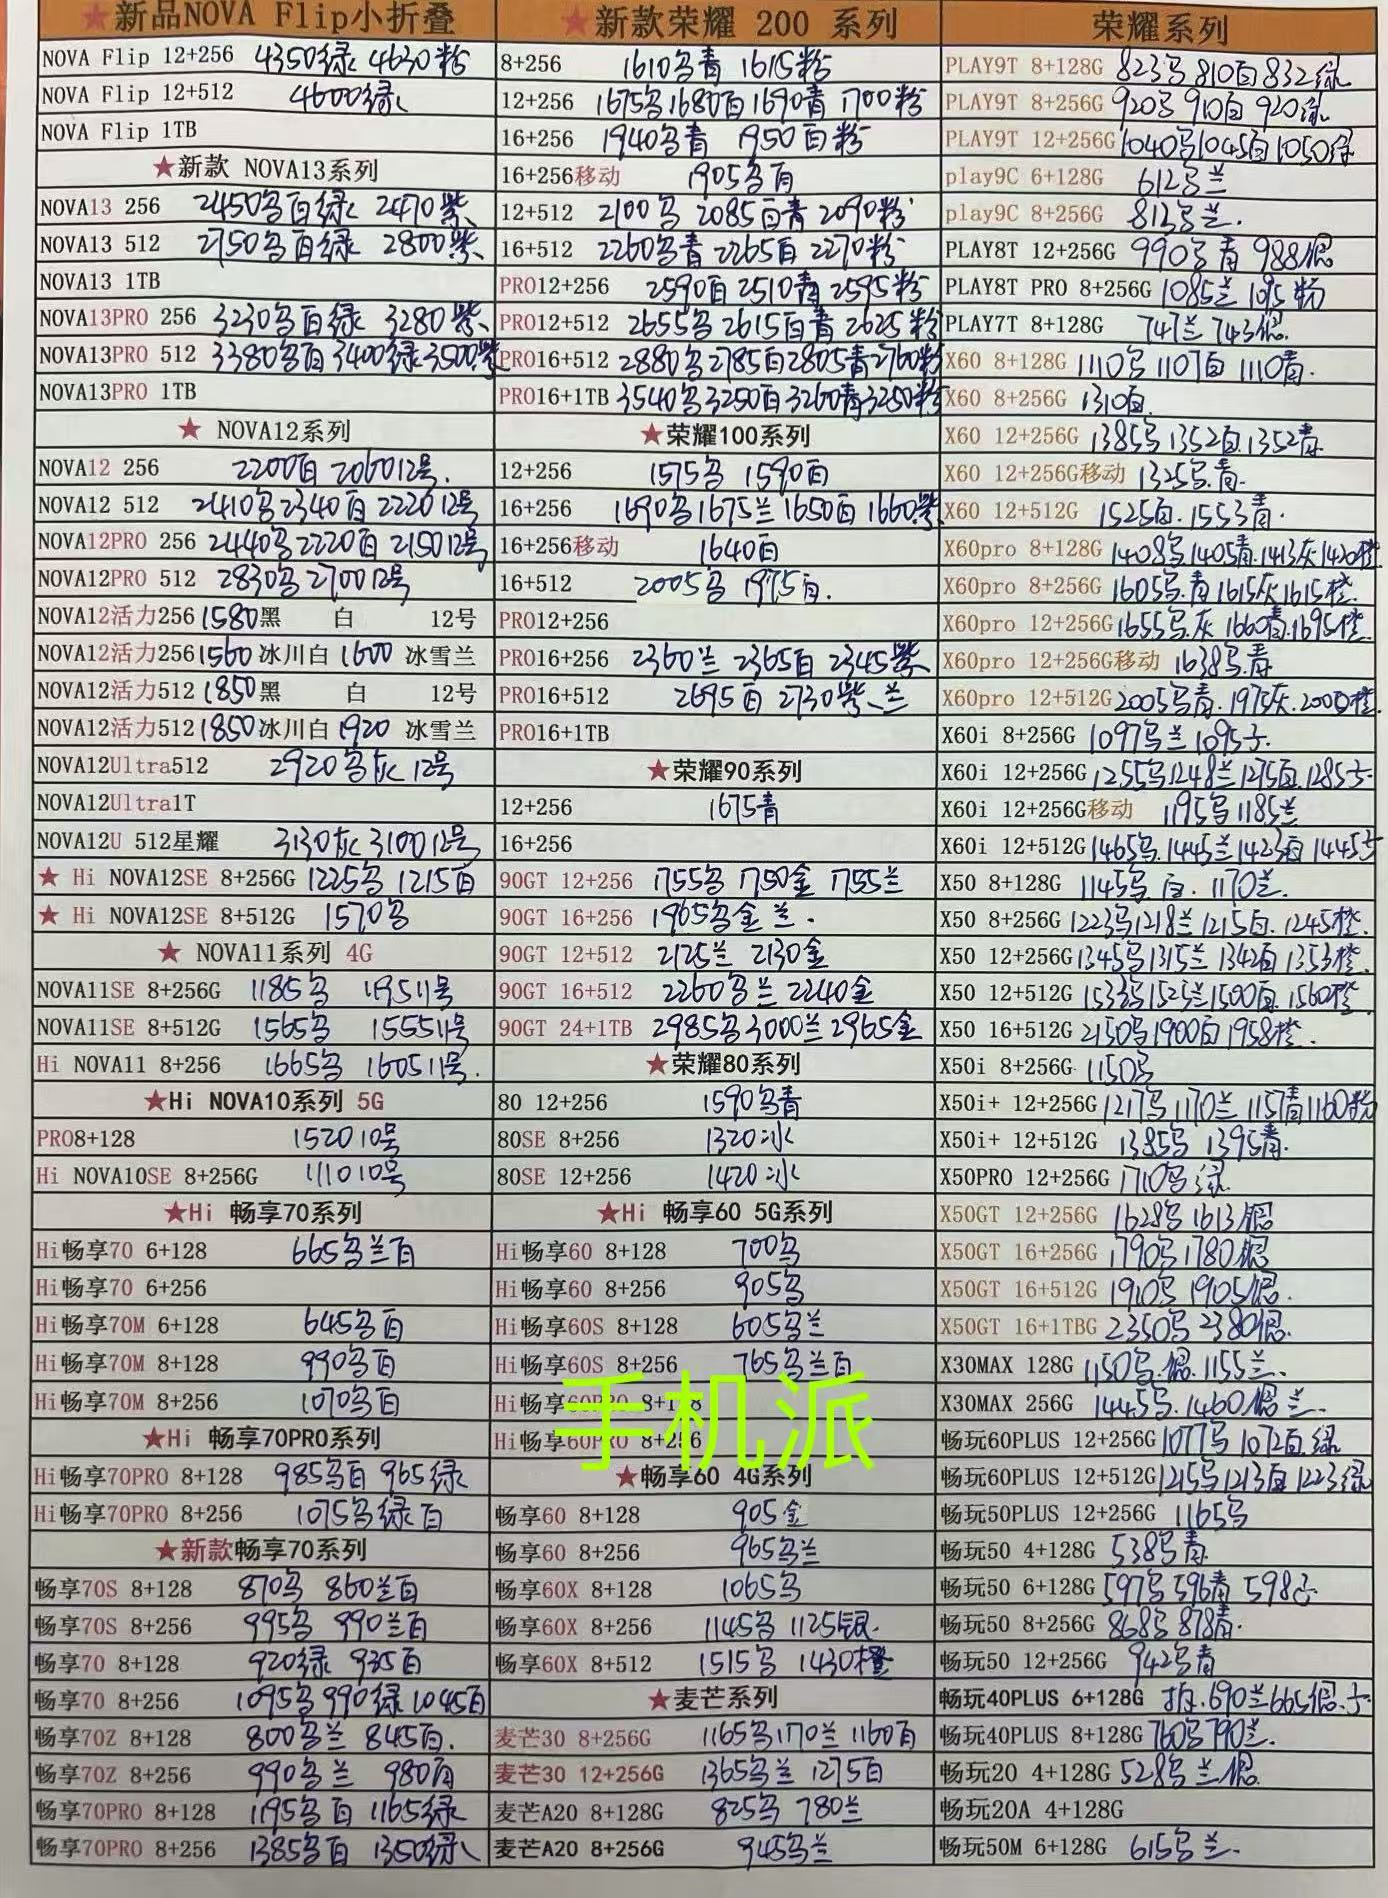 ★新品NOVA Flip小折叠
NOVA Flip 12+256 4350绿 4630粉
NOVA Flip 12+512 4600绿
NOVA Flip 1TB
★新款 NOVA13系列
NOVA13 256 2450乌白绿 2470紫
NOVA13 512 2750乌白绿 2800紫
NOVA13 1TB
NOVA13PRO 256 3230乌白绿 3280紫
NOVA13PRO 512 3380乌白 3400绿 3500紫
NOVA13PRO 1TB
★ NOVA12系列
NOVA12 256 2200白 2060 12号.
NOVA12 512 2410乌 2340白 2220 12号
NOVA12PRO 256 2440乌 2220白 2150 12号
NOVA12PRO 512 2830乌 2700 12号
NOVA12活力256 1580黑 白 12号
NOVA12活力256 1560冰川白 1600 冰雪兰
NOVA12活力512 1850黑 白 12号
NOVA12活力512 1850冰川白 1920 冰雪兰
NOVA12Ultra512 2920乌灰 12号
NOVA12Ultra1T
NOVA12U 512星耀 3130灰 3100 12号
★ Hi NOVA12SE 8+256G 1225乌 1215白
★ Hi NOVA12SE 8+512G 1570乌
★ NOVA11系列 4G
NOVA11SE 8+256G 1185乌 1195 11号
NOVA11SE 8+512G 1565乌 1555 11号
Hi NOVA11 8+256 1665乌 1605 11号.
★Hi NOVA10系列 5G
PRO8+128 1520 10号
Hi NOVA10SE 8+256G 1110 10号
★Hi 畅享70系列
Hi畅享70 6+128 665乌兰白
Hi畅享70 6+256
Hi畅享70M 6+128 645乌白
Hi畅享70M 8+128 990乌白
Hi畅享70M 8+256 1070乌白
★Hi 畅享70PRO系列
Hi畅享70PRO 8+128 985乌白 965绿
Hi畅享70PRO 8+256 1075乌绿白
★新款畅享70系列
畅享70S 8+128 870乌 860兰白
畅享70S 8+256 995乌 990兰白
畅享70 8+128 920绿 935白
畅享70 8+256 1095乌 990绿 1045白
畅享70Z 8+128 800乌兰 845白.
畅享70Z 8+256 990乌兰 980白
畅享70PRO 8+128 1195乌白 1165绿
畅享70PRO 8+256 1385乌白 1350绿
★新款荣耀 200 系列
8+256 1610乌青 1615粉
12+256 1675乌 1680白 1690青 1700粉
16+256 1940乌青 1950白粉
16+256移动 1905乌白
12+512 2100乌 2085白青 2090粉
16+512 2260乌青 2265白 2270粉
PRO12+256 2590白 2510青 2595粉
PRO12+512 2655乌 2615白青 2625粉
PRO16+512 2880乌 2785白 2805青 2760粉
PRO16+1TB 3540乌 3250白 3260青 3250粉
★荣耀100系列
12+256 1575乌 1590白
16+256 1690乌 1675兰 1650白 1660紫
16+256移动 1640白
16+512 2005乌 1975白.
PRO12+256
PRO16+256 2360兰 2365白 2345紫
PRO16+512 2695白 2730紫、兰
PRO16+1TB
★荣耀90系列
12+256 1675青
16+256
90GT 12+256 1755乌 1750金 1755兰
90GT 16+256 1965乌金兰.
90GT 12+512 2125兰 2130金
90GT 16+512 2260乌兰 2240金
90GT 24+1TB 2985乌 3000兰 2965金
★荣耀80系列
80 12+256 1590乌青
80SE 8+256 1320冰
80SE 12+256 1420冰
★Hi 畅享60 5G系列
Hi畅享60 8+128 700乌
Hi畅享60 8+256 905乌
Hi畅享60S 8+128 605乌兰
Hi畅享60S 8+256 765乌兰白
Hi畅享60PRO 8+128
Hi畅享60PRO 8+256
手机派
★畅享60 4G系列
畅享60 8+128 905金
畅享60 8+256 965乌兰
畅享60X 8+128 1065乌
畅享60X 8+256 1145乌 1125银.
畅享60X 8+512 1515乌 1430橙
★麦芒系列
麦芒30 8+256G 1165乌 1170兰 1160白
麦芒30 12+256G 1365乌兰 1275白
麦芒A20 8+128G 825乌 780兰
麦芒A20 8+256G 945乌兰
荣耀系列
PLAY9T 8+128G 823乌 810白 832绿
PLAY9T 8+256G 920乌 910白 920绿
PLAY9T 12+256G 1040乌 1045白 1050绿
play9C 6+128G 612乌兰
play9C 8+256G 812乌兰.
PLAY8T 12+256G 990乌青 988银
PLAY8T PRO 8+256G 1085兰 1095粉
PLAY7T 8+128G 747兰 743银.
X60 8+128G 1110乌 1107白 1110青.
X60 8+256G 1310白.
X60 12+256G 1385乌 1352白 1352青.
X60 12+256G移动 1325乌.青.
X60 12+512G 1525白. 1553青.
X60pro 8+128G 1408乌. 1405青. 1413灰 1420橙
X60pro 8+256G 1605乌.青 1615灰 1615橙.
X60pro 12+256G 1655乌.灰 1660青. 1695橙.
X60pro 12+256G移动 1638乌.青
X60pro 12+512G 2005乌青. 1975灰. 2000橙.
X60i 8+256G 1097乌兰 1095子.
X60i 12+256G 1255乌 1248兰 1275白. 1285子
X60i 12+256G移动 1195乌 1185兰
X60i 12+512G 1465乌. 1445兰 1423白 1445子
X50 8+128G 1145乌.白. 1170兰.
X50 8+256G 1223乌 1218兰 1215白. 1245橙.
X50 12+256G 1345乌 1315兰 1342白 1353橙.
X50 12+512G 1533乌 1525兰 1500白. 1560橙.
X50 16+512G 2150乌 1900白 1958橙.
X50i 8+256G 1150乌
X50i+ 12+256G 1217乌 1170兰 1157青 1160粉
X50i+ 12+512G 1385乌 1395青.
X50PRO 12+256G 1710乌绿
X50GT 12+256G 1628乌 1613银
X50GT 16+256G 1790乌 1780银
X50GT 16+512G 1910乌 1905银.
X50GT 16+1TBG 2350乌 2380银.
X30MAX 128G 1150乌.银. 1155兰.
X30MAX 256G 1445乌. 1460银兰.
畅玩60PLUS 12+256G 1077乌 1072白.绿
畅玩60PLUS 12+512G 1215乌 1213白 1223绿
畅玩50PLUS 12+256G 1165乌
畅玩50 4+128G 538乌青
畅玩50 6+128G 597乌 596青 598子
畅玩50 8+256G 868乌 878青.
畅玩50 12+256G 942乌青
畅玩40PLUS 6+128G 690兰 665银.子
畅玩40PLUS 8+128G 760乌 790兰.
畅玩20 4+128G 528乌兰银.
畅玩20A 4+128G
畅玩50M 6+128G 615乌兰.